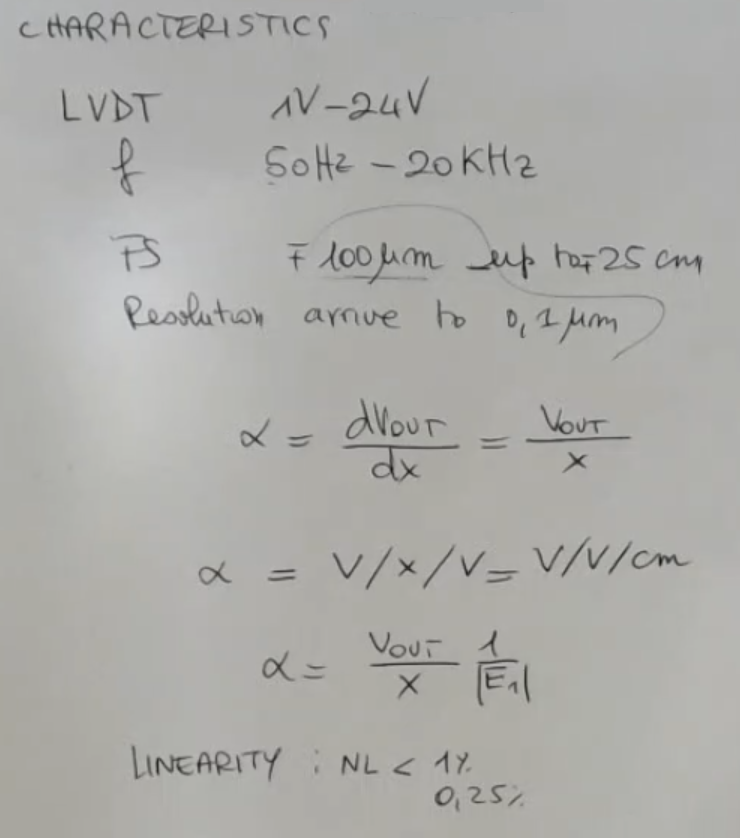 CHARACTERISTICS
LVDT 1V-24V
f 50Hz - 20KHz
FS ∓ 100μm up to ∓ 25 cm
Resolution arrive to 0,1μm
α = dVOUT/dx = VOUT/x
α = V/x/V = V/V/cm
α = VOUT/x 1/|E1|
LINEARITY : NL < 1%
0,25%